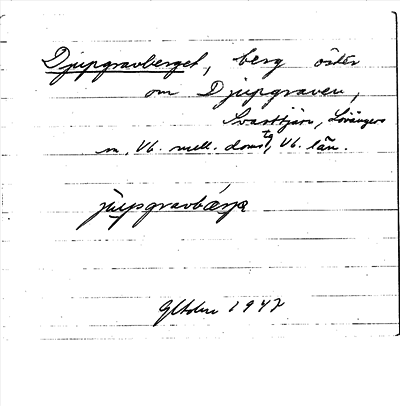 Djupgravberget, berg öster
om Djupgraven,
Svarttjärn, Lövångers
sn, Vb. mell. doms tg, Vb. län.
jupgravbærje
1947